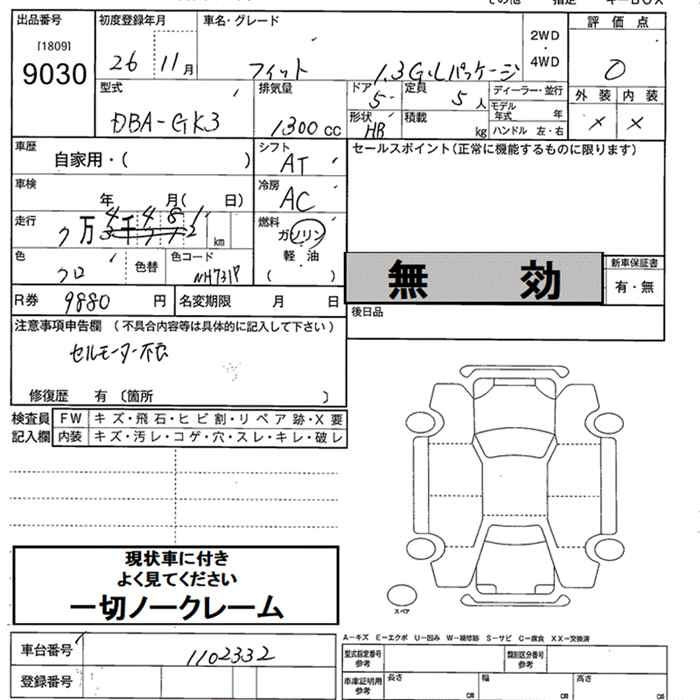 出品番号 初度登録年月 車名・グレード 2WD・4WD 評価点
[1809]
9030 26 11月 フィット 1.3G・Lパッケージ 0
型式 排気量 ドア 定員 ディーラー・並行 外装 内装
DBA-GK3 1,300cc 5 5人 モデル年式 年 × ×
形状 積載 ハンドル 左・右
HB kg
車歴 シフト セールスポイント(正常に機能するものに限ります)
自家用・( ) AT
車検 冷房
年 月( 日) AC
走行 燃料
7万 4千481 km ガソリン
軽油
( )
色 色替 色コード
クロ NH731P
無効 新車保証書
有・無
R券 9880円 名変期限 月 日 後日品
注意事項申告欄 (不具合内容等は具体的に記入して下さい)
セルモーター不良
修復歴 有 〔箇所 〕
検査員 FW キズ・飛石・ヒビ割・リペア跡・X要
記入欄 内装 キズ・汚レ・コゲ・穴・スレ・キレ・破レ
現状車に付き
よく見てください
一切ノークレーム
スペア
A-キズ E-エクボ U-凹み W-補修跡 S-サビ C-腐食 XX-交換済
車台番号 1102332 型式指定番号 参考 類別区分番号 参考
登録番号 車庫証明用 参考 長さ cm 幅 cm 高さ cm